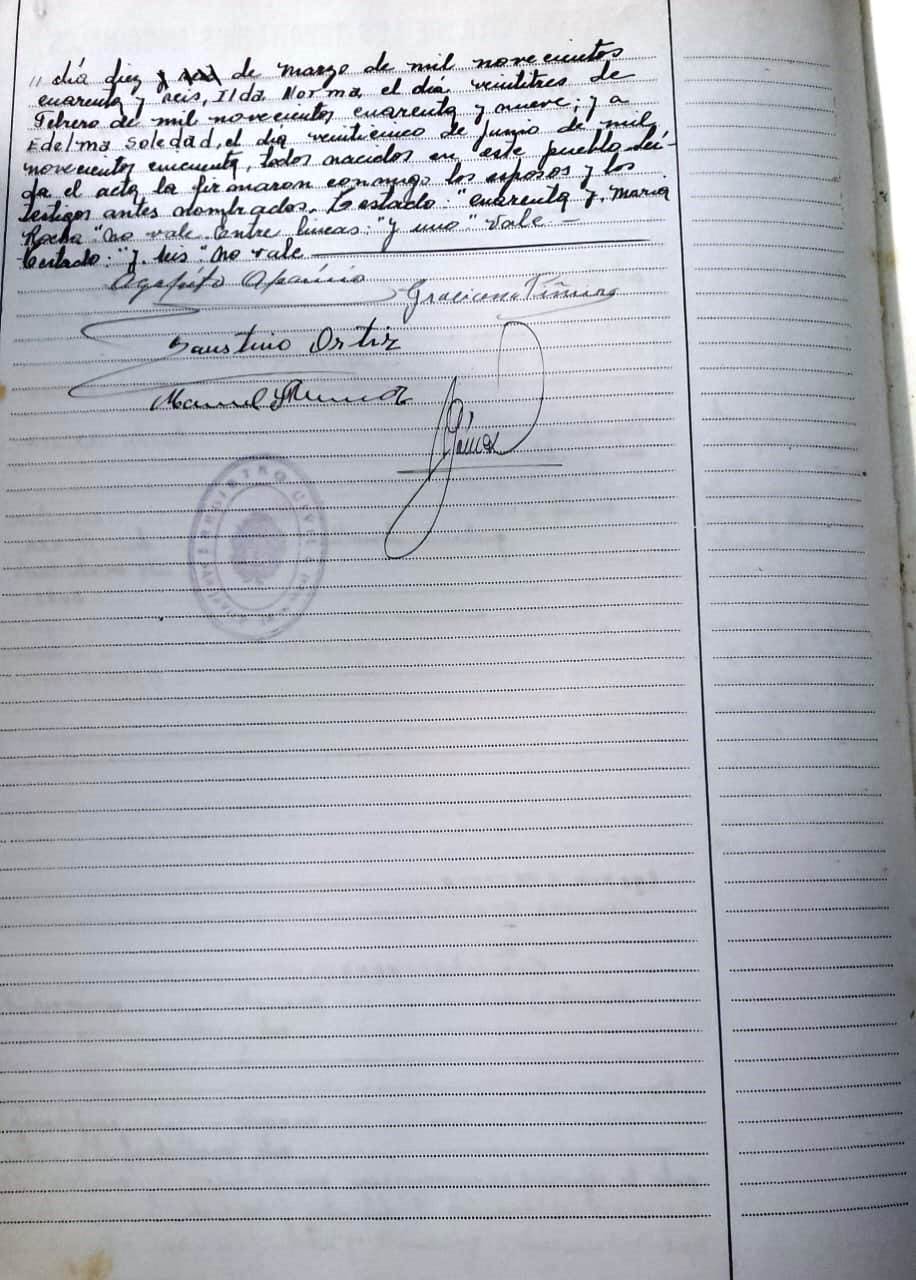 " día diez de Marzo de mil novecientos
cuarenta y seis, Ilda Norma, el día veintitres de
Febrero de mil novecientos cuarenta y nueve; y a
Edelma Soledad, el día veinticinco de Junio de mil
novecientos cincuenta, todos nacidos en este pueblo. Leí-
da el acta la firmaron conmigo los esposos y los
testigos antes nombrados. Testado: "cuarenta y. Maria
Rocha" No vale. Entre lineas: "y uno" Vale —
Testado: "y. seis" No vale —
Agapito Aparicio
Graciana
Faustino Ortiz
Manuel
REGISTRO CIVIL